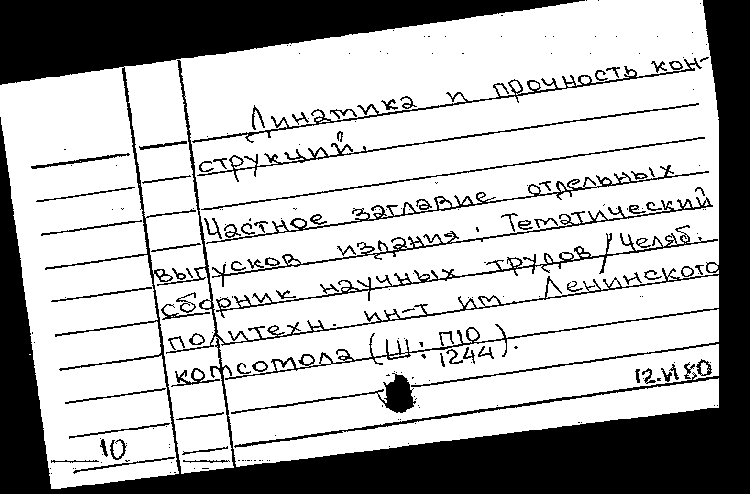 Динамика и прочность кон-
струкций.
Частное заглавие отдельных
выпусков издания: Тематический
сборник научных трудов / Челяб.
политехн. ин-т им. Ленинского
комсомола (Ш: П10/1244).
12.VI 80
10